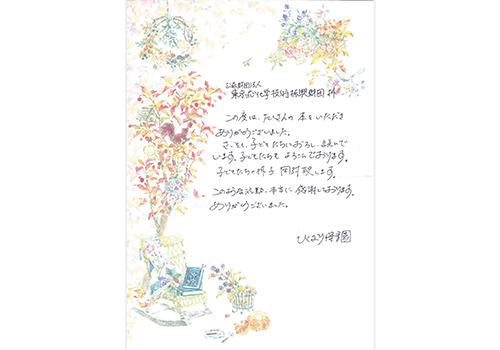 公益財団法人
東京応化科学技術振興財団 様
この度は、たくさんの本をいただき
ありがとうございました。
さっそく、子どもたちにおろし、読んで
います。子どもたちも よろこんでおります。
子どもたちの様子 同封致します。
このような活動、本当に 感謝しております。
ありがとうございました。
ひくまり保育園